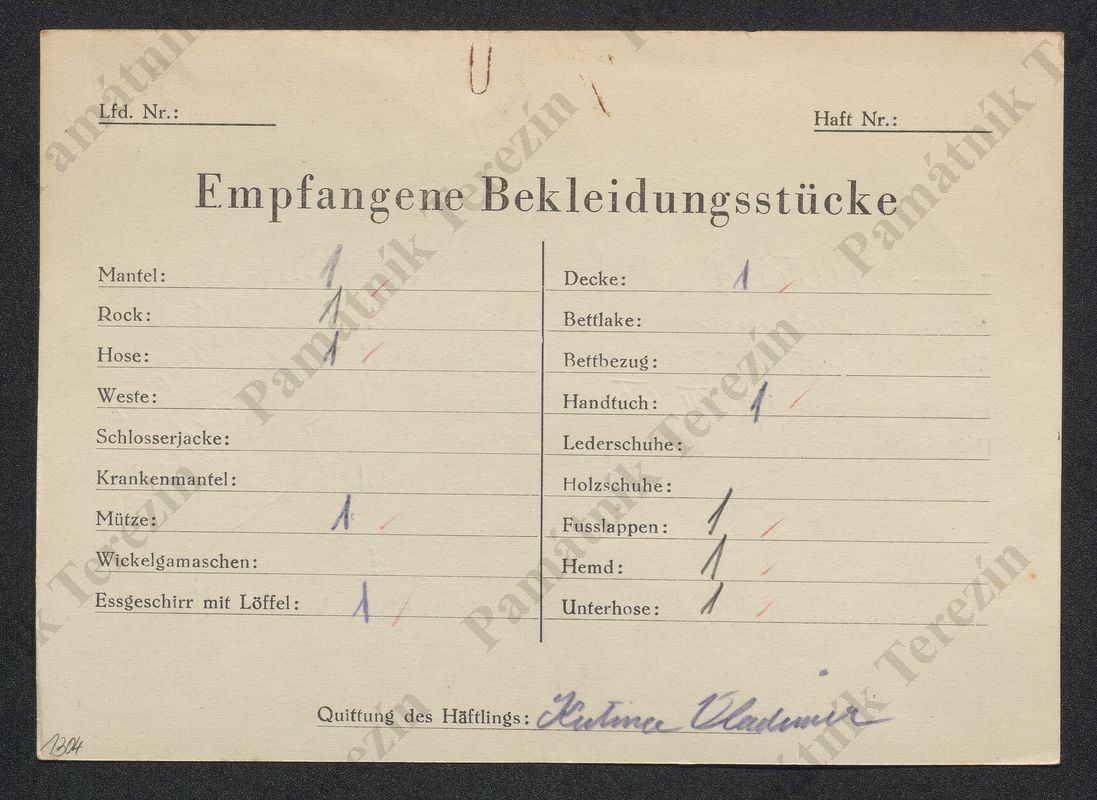 Lfd. Nr.:
Haft Nr.:
Empfangene Bekleidungsstücke
Mantel: 1
Rock: 1
Hose: 1
Weste:
Schlosserjacke:
Krankenmantel:
Mütze: 1
Wickelgamaschen:
Essgeschirr mit Löffel: 1
Decke: 1
Bettlake:
Bettbezug:
Handtuch: 1
Lederschuhe:
Holzschuhe:
Fusslappen: 1
Hemd: 1
Unterhose: 1
Quittung des Häftlings: Vladimir
1304
Památník Terezín